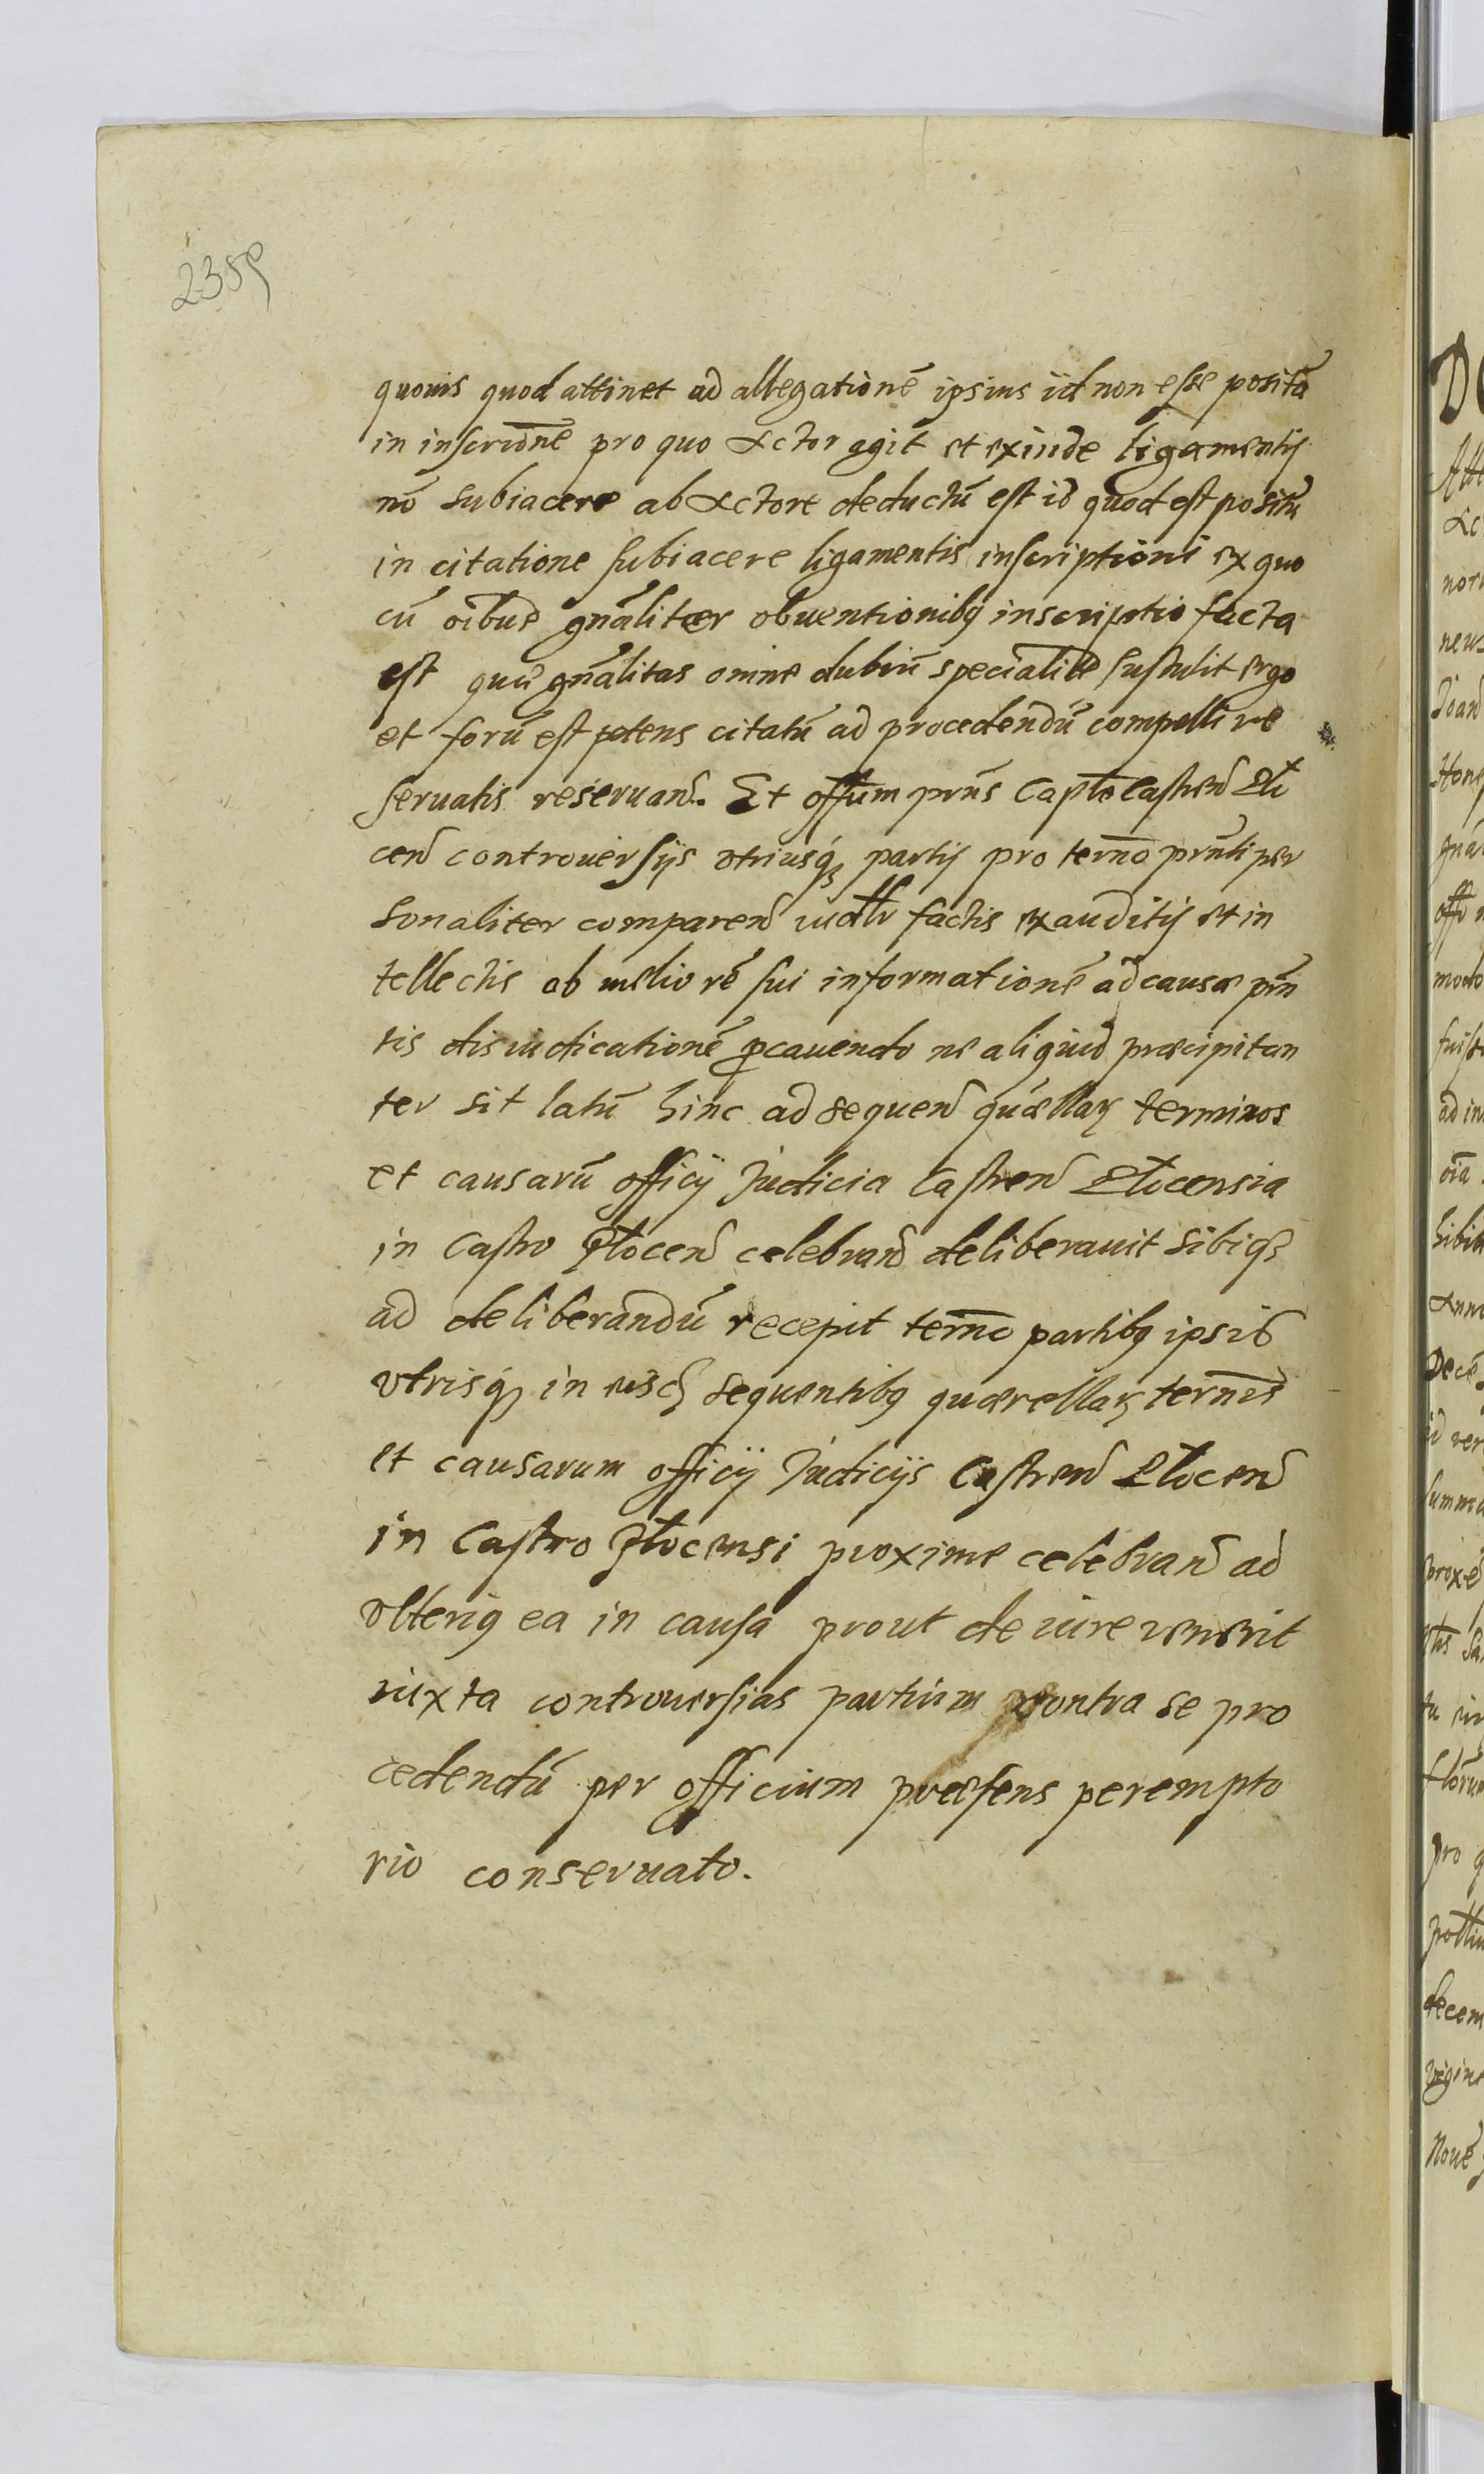 2359
quouis quod attinet ad allegationē ipsius id non esse positū
in inscrio͞nē pro quo Actor agit et exinde ligamentis
nō subiacere ab Actore deductū est id quod est positū
in citatione subiacere ligamentis inscriptioni ex quo
cū oībus gn͞aliter obuentionibꝫ inscriptio facta
est quæ gn͞alitas omne dubiū specialitte sustulit ergo
et forū est petens citatū ad procedendū compelli re
seruatis reseruand. Et offūm pn͞s Captle Castren Plo
cen controuersijs vtriusqꝫ partis pro termo pn͞ti per
sonaliter comparen iudtr factis exauditis et in
tellectis ob meliorē sui informationē ad causæ pn͞
tis disiudicationē p͞cauendo ne aliquid præcipitan
ter sit latū hinc ad sequen quærellaꝝ terminos
et causarū officij Judicia Castren Plocensia
in Castro Plocen celebrand deliberauit sibiqꝫ
ad deliberandū recepit term̄o partibꝫ ipsis
vtrisqꝫ in eisd sequentibꝫ quærellaꝝ term̄is
et causarum officij Judicijs Castren Plocen
in Castro Plocensi proxime celebrand ad
vlterius ea in causa prout de iure venerit
iuxta controuersias partium contra se pro
cedendū per officium præsens perempto
rio conseruato.